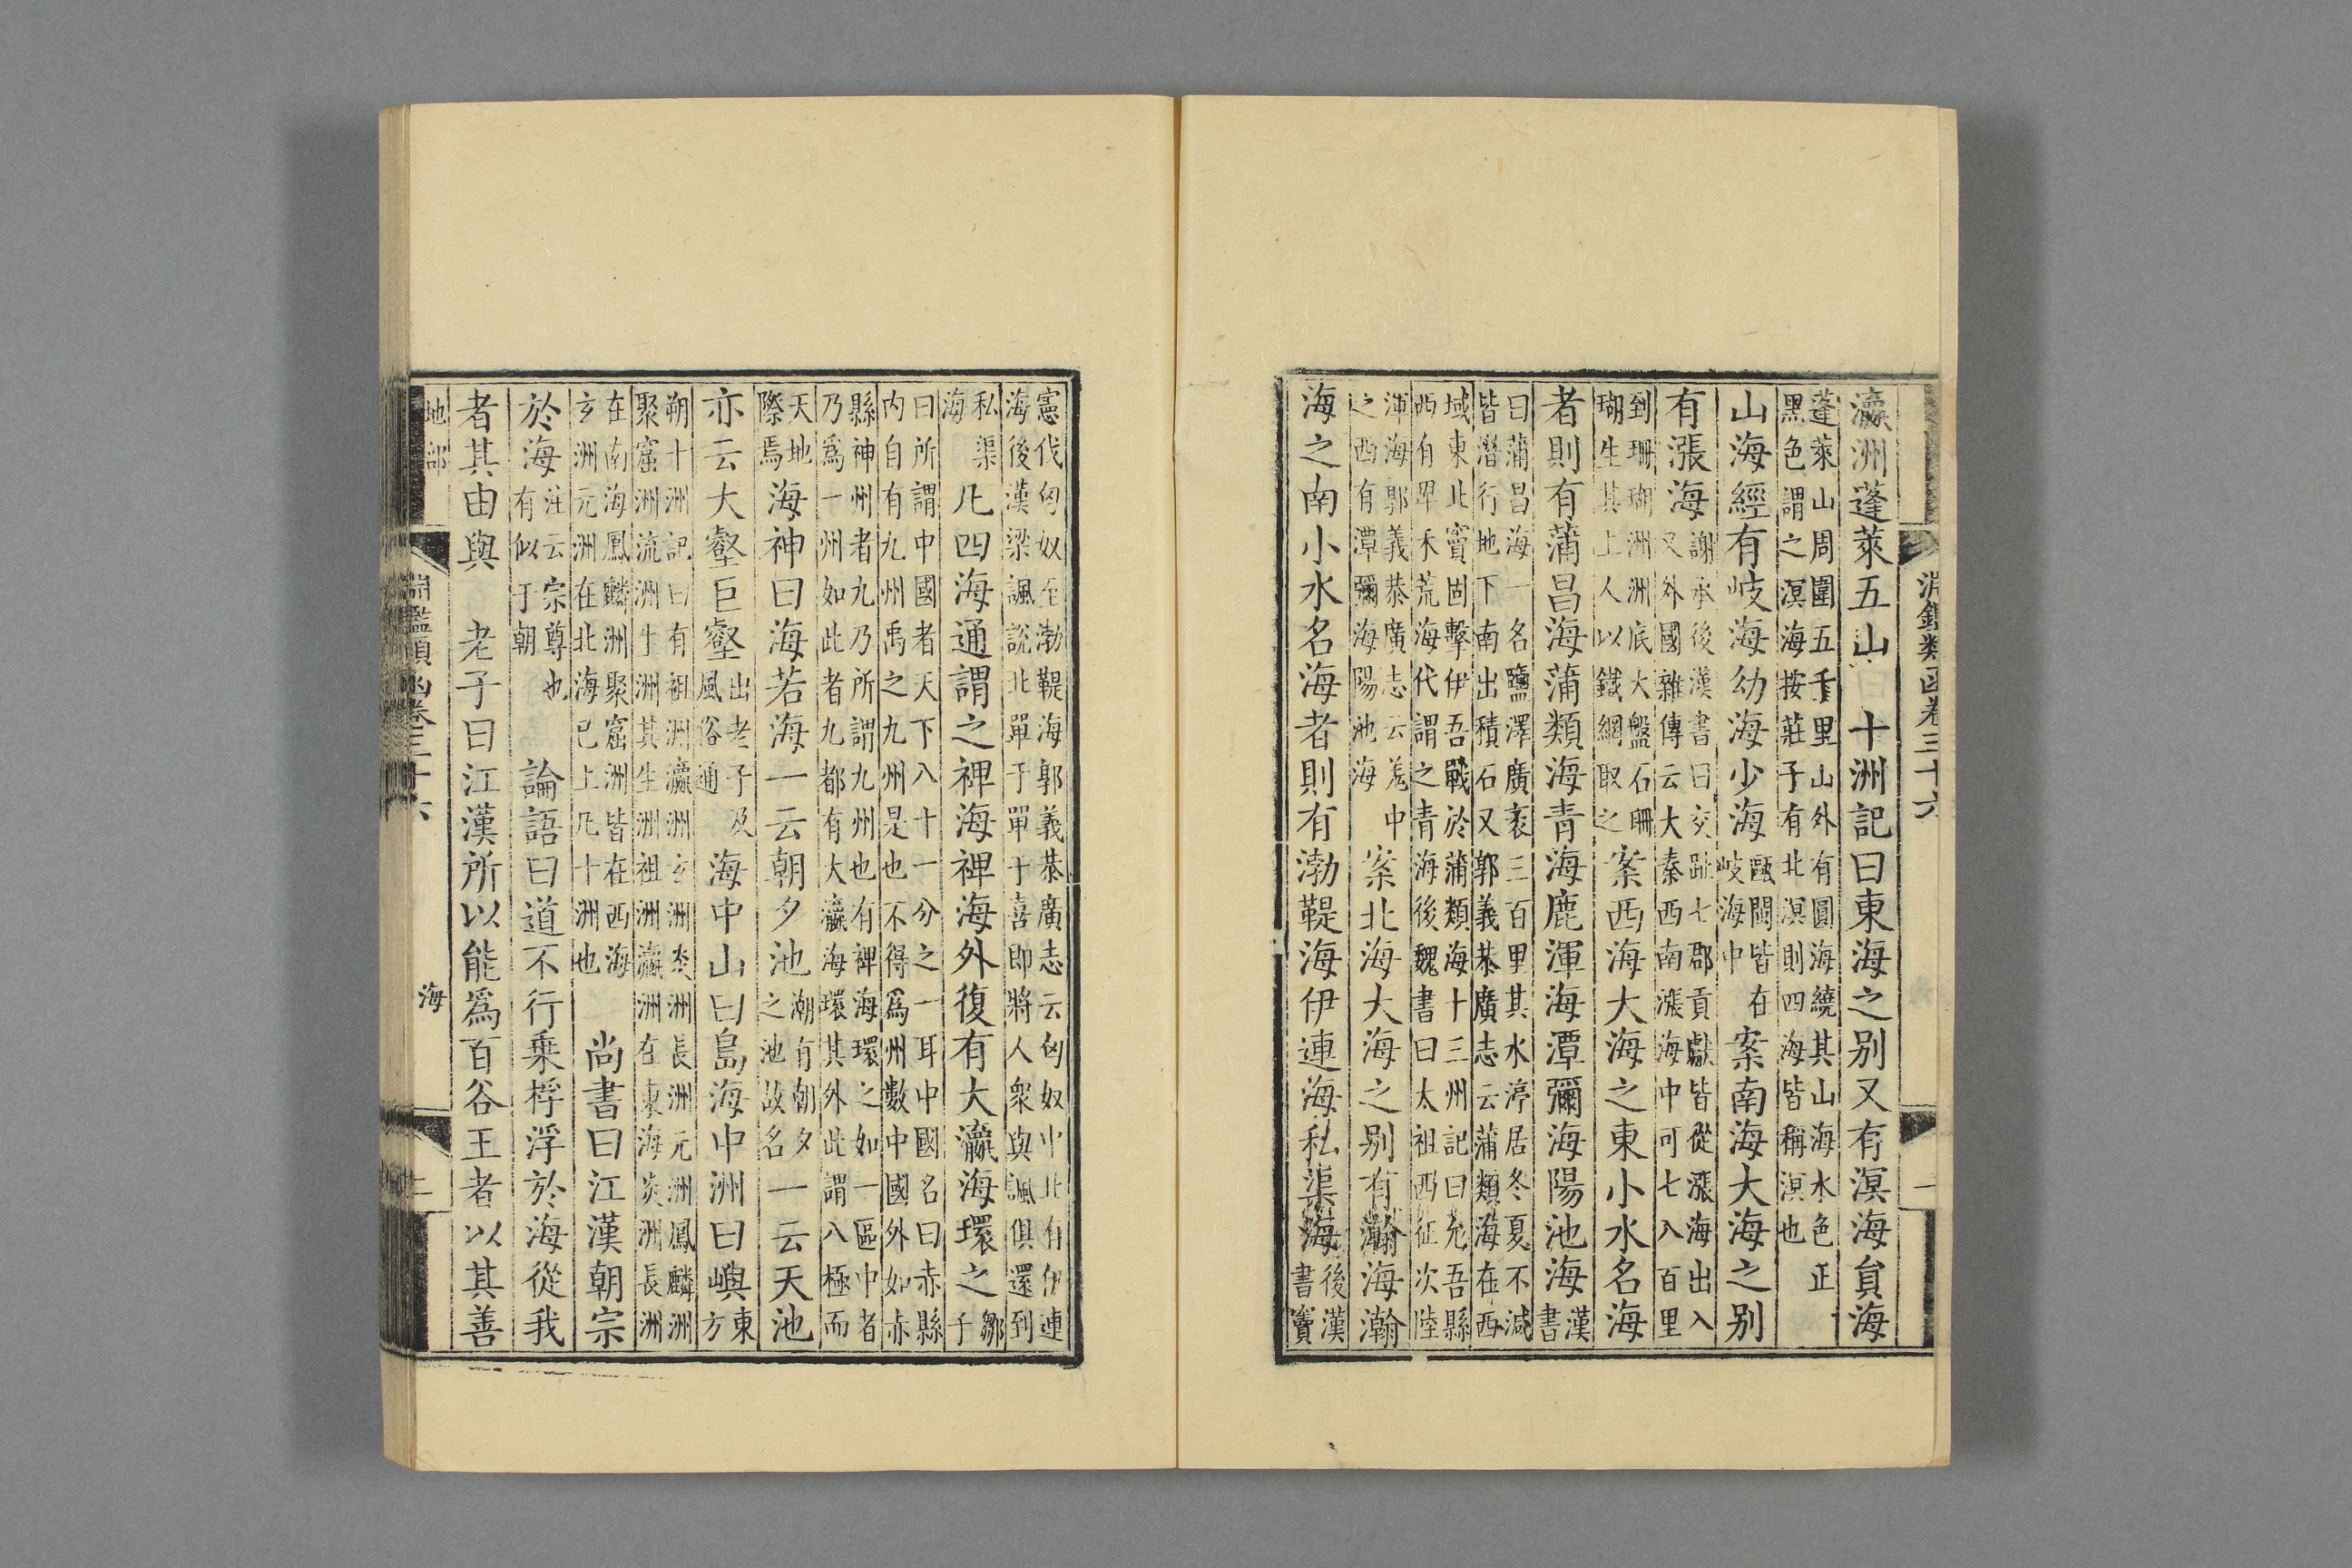 淵鑑類函卷三十六 一
瀛洲蓬萊五山 十洲記曰東海之别又有溟海員海
蓬萊山周圍五千里山外有圓海繞其山海水色正
黑色謂之溟海按莊子有北溟則四海皆稱溟也
山海經有岐海幼海少海 甌閩皆在岐海中 案南海大海之别
有漲海 謝承後漢書曰交趾七郡貢獻皆從漲海出入
又外國雜傳云大秦西南漲海中可七八百里
到珊瑚洲洲底大盤石珊瑚生其上人以鐵網取之 案西海大海之東小水名海
者則有蒲昌海蒲類海青海鹿渾海潭彌海陽池海 漢書
曰蒲昌海一名鹽澤廣袤三百里其水渟居冬夏不減
皆潛行地下南出積石又郭義恭廣志云蒲類海在西
域東北竇固擊伊吾戰於蒲類海十三州記曰允吾縣
西有卑禾荒海代謂之青海後魏書曰太祖西征次陸
渾海郭義恭廣志云羌中之西有潭彌海陽池海 案北海大海之别有瀚海瀚
海之南小水名海者則有渤鞮海伊連海私渠海 後漢書竇
憲伐匈奴至渤鞮海郭義恭廣志云匈奴中北有伊連
海後漢梁諷說北單于單于喜即將人衆與諷俱還到
私渠海 凡四海通謂之裨海裨海外復有大瀛海環之 鄒子
曰所謂中國者天下八十一分之一耳中國名曰赤縣
内自有九州禹之九州是也不得爲州數中國外如赤
縣神州者九乃所謂九州也有裨海環之如一區中者
乃爲一州如此者九都有大瀛海環其外此謂八極而
天地際焉 海神曰海若海一云朝夕池 潮有朝夕之池故名 一云天池
亦云大壑巨壑 出老子及風俗通 海中山曰島海中洲曰嶼 東方
朔十洲記曰有祖洲瀛洲玄洲炎洲長洲元洲鳳麟洲
聚窟洲流洲生洲其生洲祖洲瀛洲在東海炎洲長洲
在南海鳳麟洲聚窟洲皆在西海
玄洲元洲在北海已上凡十洲也 尚書曰江漢朝宗
於海 注云宗尊也有似于朝 論語曰道不行乗桴浮於海從我
者其由與 老子曰江漢所以能爲百谷王者以其善
地部 淵鑑類函卷三十六 海 二